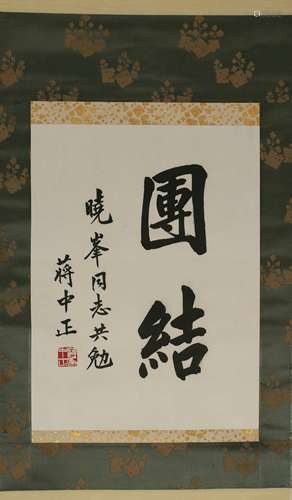 團結
曉峯同志共勉
蔣中正